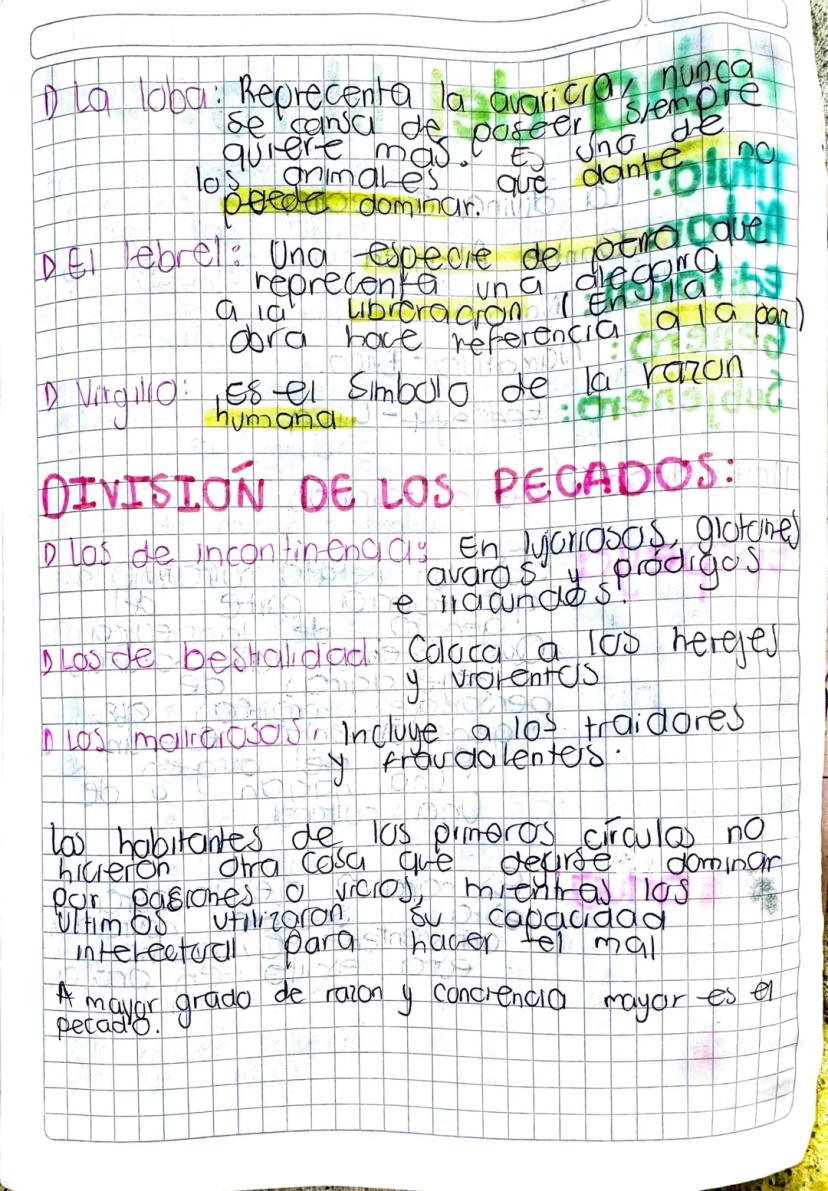 La loba: Reprecenta la avaricia, nunca
se cansa de poseer, siempre
quiere mas. Es uno de
los animales que dante no
puede dominar.
El lebrel: Una especie de perro que
reprecenta una alegoria
a la Libreracion (En la
obra hace referencia a la paz)
Virgilio: Es el simbolo de la razon
humana
DIVISIÓN DE LOS PECADOS:
Los de incontinencia: En lujoriosos, glotones
avaros y pródigos
e iracundos.
Los de bestialidad: Coloca a los herejes
y violentos
Los maliciosos: Incluye a los traidores
y fraudalentes.
Los habitantes de los primeros círculos no
hicieron otra cosa que dejarse dominar
por pasiones o vicios, mientras los
ultimos utilizaron su capacidad
intelectual para hacer el mal
A mayor grado de razon y conciencia mayor es el
pecado.